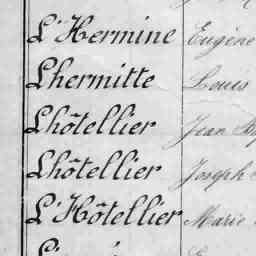 L'Hermine Eugène
Lhermitte Louis
Lhôtellier Jean
Lhôtellier Joseph
L'Hôtellier Marie